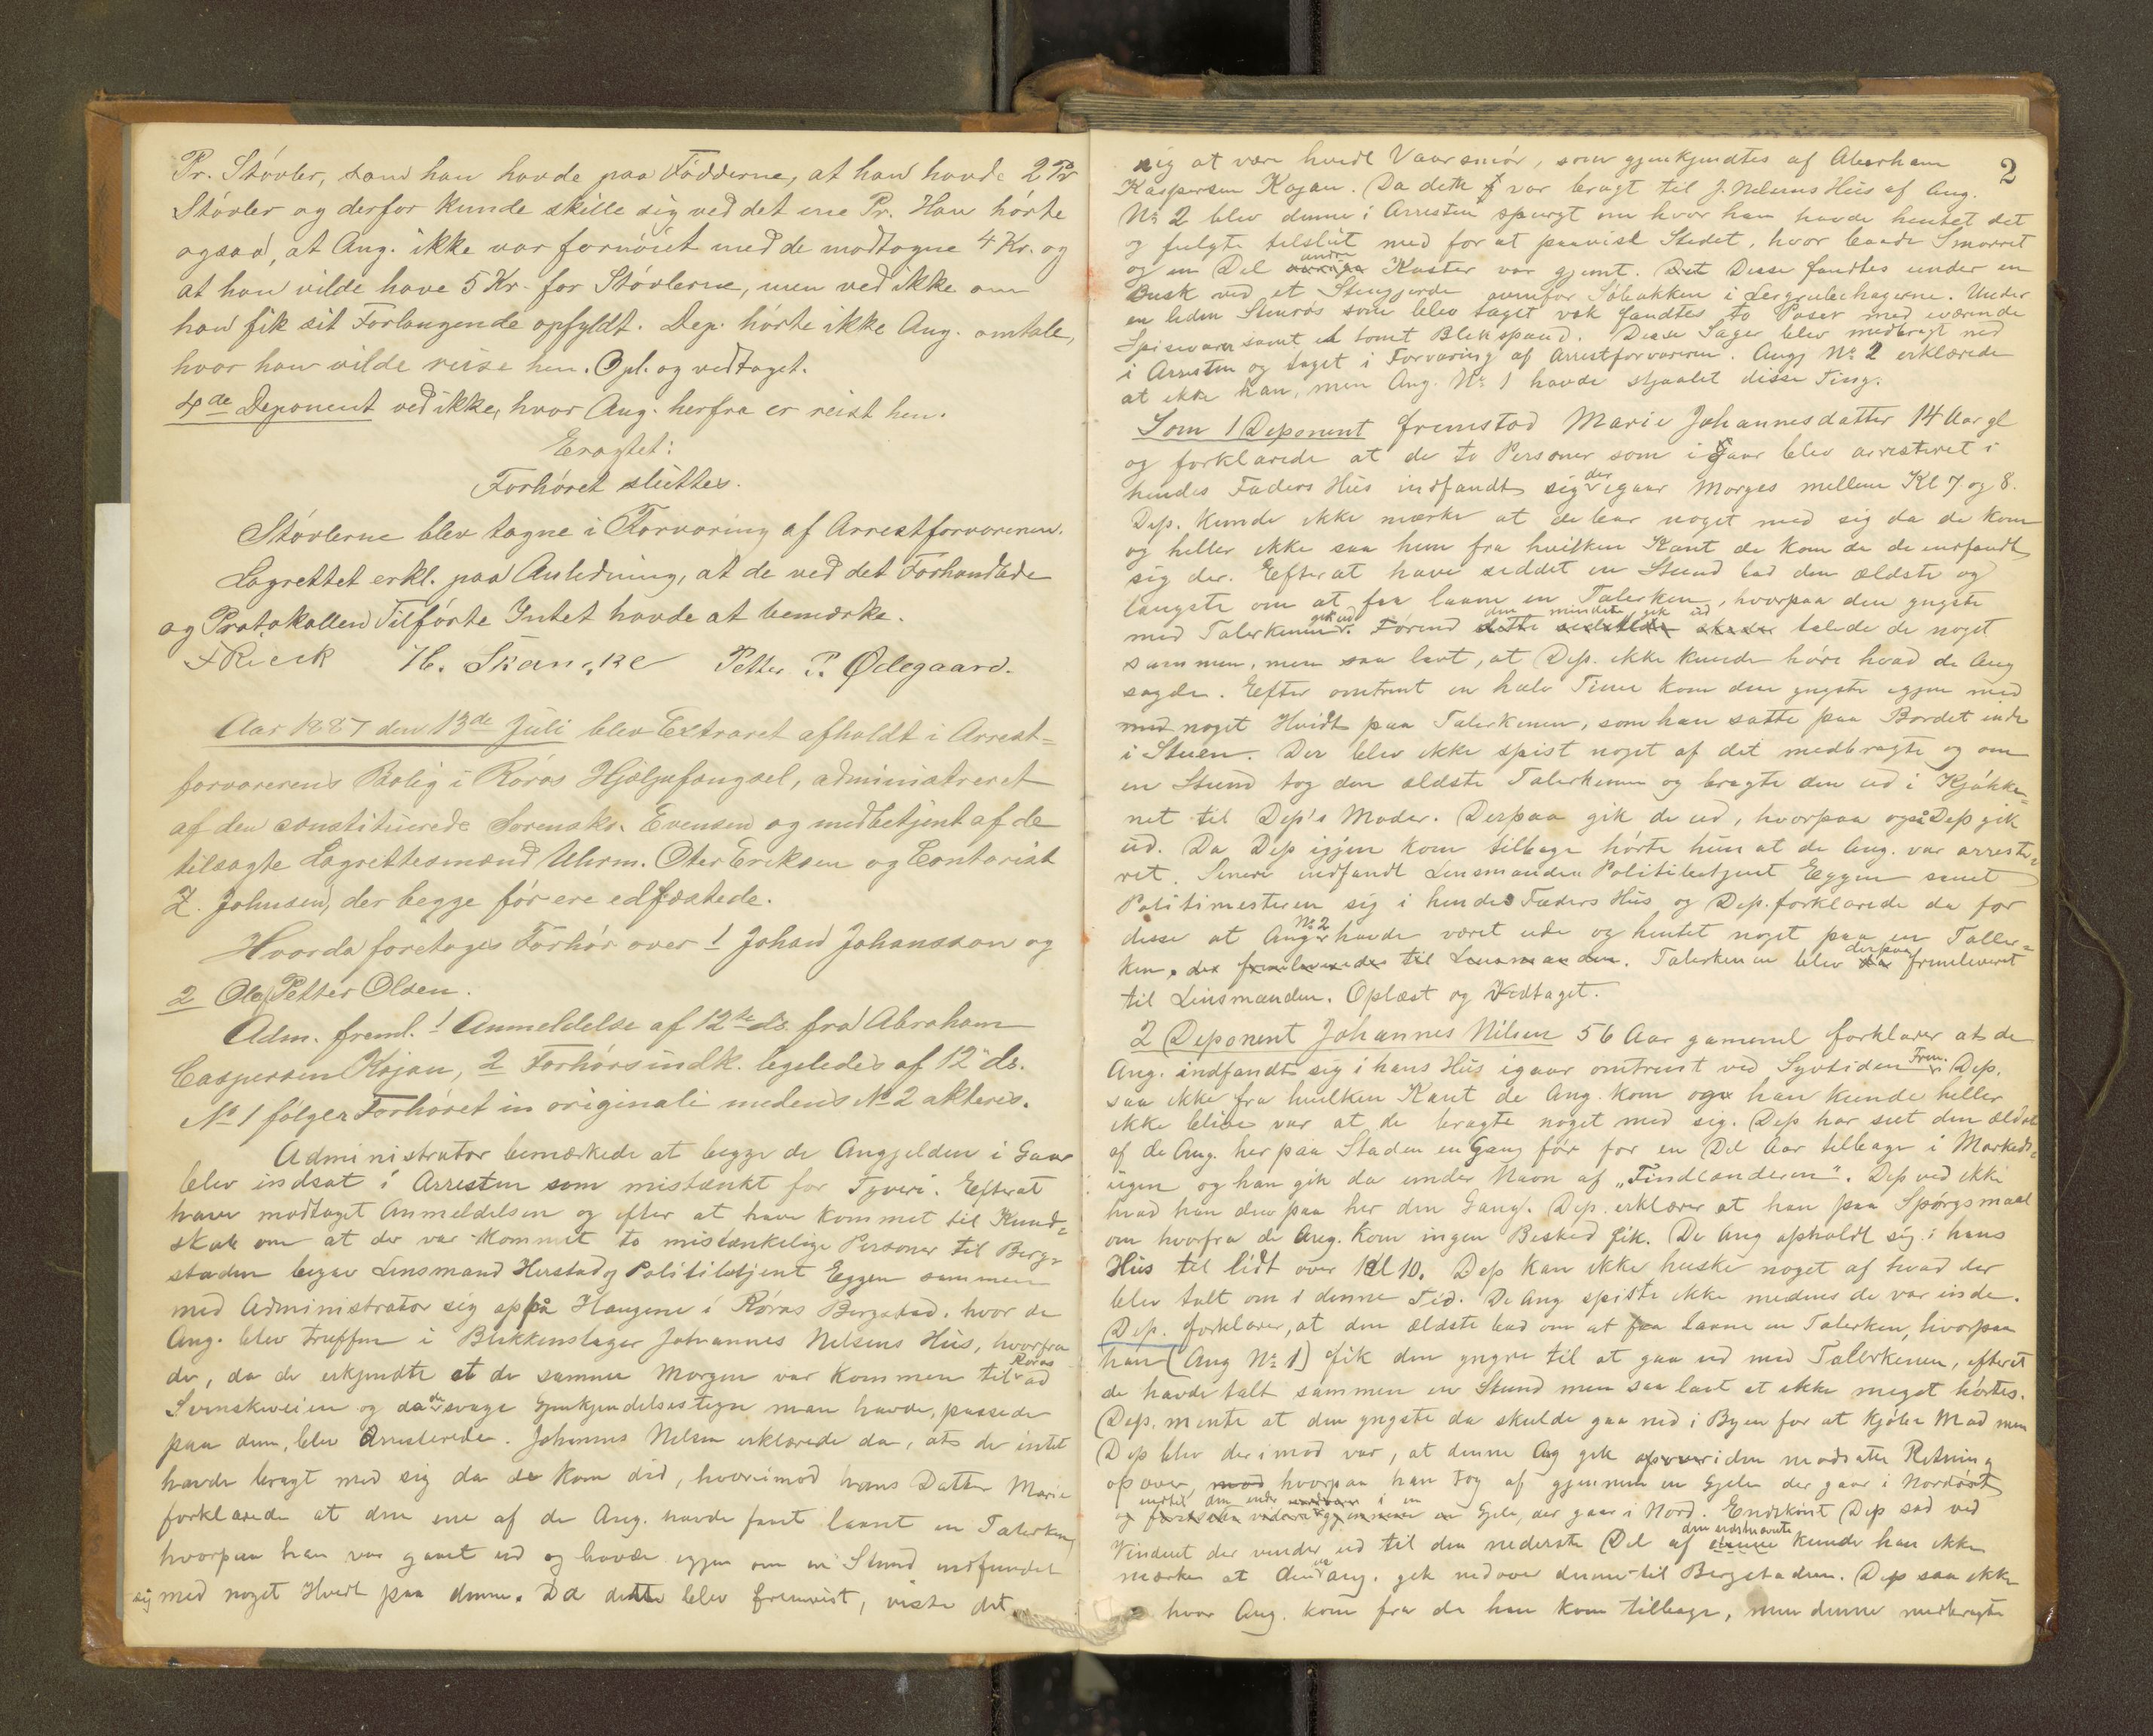 Pr. Støvler, som han havde paa Fødderne, at han havde 2 Pr
Støvler og derfor kunde skille sig ved det ene Pr. Han hørte
ogsaa, at Ang. ikke var fornøiet med de modtagne 4 Kr. og
at han vilde have 5 Kr. for Støvlerne, men ved ikke om
han fik sit Forlangende opfyldt. Dep. hørte ikke Ang. omtale,
hvor han vilde reise hen. Opl. og vedtaget.
4de Deponent ved ikke, hvor Ang. herfra er reist hen.
Eragtet:
Forhøret sluttes.
Støvlerne blev tagne i Forvaring af Arrestforvareren.
Lagrettet erkl. paa Anledning, at de ved det Forhandlede
og Protokollen Tilførte Intet havde at bemærke.
FRieck H. Skancke Petter P. Ødegaard.
Aar 1887 den 13de Juli blev Extraret afholdt i Arrest=
forvarerens Bolig i Røros Hjælpefængsel, administreret
af den constituerede Sorenskr. Evensen og medbetjent af de
tilsagte Lagrettesmænd Uhrm. Oter Eriksen og Contorist
Z. Johnsen, der begge før ere edfæstede.
Hvorda foretoges Forhør over 1 Johan Johansson og
2 Ole Petter Olsen.
Adm. freml. 1 Anmeldelse af 12te ds. fra Abraham
Caspersen Kojan, 2 Forhørsindk. ligeledes af 12 ds.
No 1 følger Forhøret in originali medens No 2 akteres.
Administrator bemærkede at begge de Angjeldene i Gaar
blev indsat i Arresten som mistænkt for Tyveri. Efterat
have modtaget Anmeldelsen og efter at have kommet til Kund=
skab om at der var kommet to mistænkelige Personer til Berg=
staden begav Lensmand Herstad og Politibetjent Eggen sammen
med Administrator sig oppå Haugene i Røros Bergstad, hvor de
Ang. blev truffen i Blikkenslager Johannes Nelsens Hus, hvorfra
de, da de erkjendte at de samme Morgen var kommen til Røros ad
Svenskveien og da de svage Gjenkjendelsestegn man havde, passede
paa dem, blev Arresterede. Johannes Nelsen erklærede da, at de intet
havde bragt med sig da de kom did, hvorimod hans Datter Marie
forklarede at den ene af de Ang. havde faaet laant en Talerken
hvorpaa han var gaaet ud og havde igjen om en Stund indfundet
sig med noget Hvidt paa denne. Da dette blev fremvist, viste det
2
sig at være hvidt Vaarsmør, som gjenkjendtes af Abraham
Kaspersen Kojan. Da dette var bragt til J. Nelsens Hus af Ang.
No 2 blev denne i Arresten spurgt om hvor han havde hentet det
og fulgte tilslut med for at paavise Stedet, hvor baade Smørret
og en Del andre Koster var gjemt. Disse fandtes under en
Busk ved et Stengjerde ovenfor Søbakken i Lergrubehagerne. Under
en liden Stenrøs som blev taget væk fandtes to Poser med
Spisevarer samt et tomt Blikspand. Disse Sager blev medbragt ned
i Arresten og taget i Forvaring af Arrestforvareren. Ang No 2 erklærede
at ikke han, men Ang. No 1 havde stjaalet disse Ting.
Som 1 Deponent fremstod Marie Johannesdatter 14 Aar gl
og forklarede at de to Personer som i Gaar blev arresteret i
hendes Faders Hus indfandt sig der igaar Morges mellem Kl 7 og 8.
Dep. kunde ikke mærke at de bar noget med sig da de kom
og heller ikke saa hun fra hvilken Kant de kom da de indfandt
sig der. Efter at have siddet en Stund bad den ældste og
længste om at faa laane en Talerken, hvorpaa den yngste
med Talerkenen gik ud. Førend den mindste gik ud talede de noget
sammen, men saa lavt, at Dep. ikke kunde høre hvad de Ang
sagde. Efter omtrent en halv Time kom den yngste igjen med
med noget Hvidt paa Talerkenen, som han satte paa Bordet inde
i Stuen. Der blev ikke spist noget af det medbragte og om
en Stund tog den ældste Talerkenen og bragte den ud i Kjøkke=
net til Dep's Moder. Derpaa gik de ud, hvorpaa også Dep gik
ud. Da Dep igjen kom tilbage hørte hun at de Ang. var arreste=
ret. Senere indfandt Lensmanden Politibetjent Eggen samt
Politimesteren sig i hendes Faders Hus og Dep. forklarede da for
disse at Ang No 2 havde været ude og hentet noget paa en Taller=
ken, der fremleveredes til Lensmanden. Talerkenen blev derpaa fremleveret
til Lensmanden. Oplæst og Vedtaget.
2 Deponent Johannes Nilsen 56 Aar gammel forklarer at de
Ang. indfandt sig i hans Hus igaar omtrent ved Syvtiden Frem. Dep.
saa ikke fra hvilken Kant de Ang. kom og han kunde heller
ikke blive var at de bragte noget med sig. Dep har seet den ældste
af de Ang. her paa Staden en Gang før for en Del Aar tilbage i Markeds=
ugen og han gik da under Navn af „Findlænderen". Dep ved ikke
hvad han drev paa her den Gang. Dep. erklærer at han paa Spørgsmaal
om hvorfra de Ang. kom ingen Besked fik. De Ang opholdt sig i hans
Hus til lidt over Kl 10. Dep kan ikke huske noget af hvad der
blev talt om i denne Tid. De Ang spiste ikke medens de var inde.
Dep. forklarer, at den ældste bad om at faa laane en Talerken, hvorpaa
han (Ang No 1) fik den yngre til at gaa ud med Tallerkenen, efterat
de havde talt sammen en Stund men saa lavt at ikke meget hørtes.
Dep. mente at den yngste da skulde gaa ned i Byen for at kjøbe Mad men
Dep blev derimod var, at denne Ang gik i den modsatte Retning
opover, hvorpaa han tog af gjennem en Gjele der gaar i Nordøst
indtil den i en Gjele, der gaar i Nord. Endskønt Dep sad ved
Vinduet der vender ud til den nederste Del af den sidstnævnte kunde han ikke
mærke at den Ang. gik nedover denne til Bergstaden. Dep saa ikke
hvor Ang. kom fra da han kom tilbage, men denne medbragte